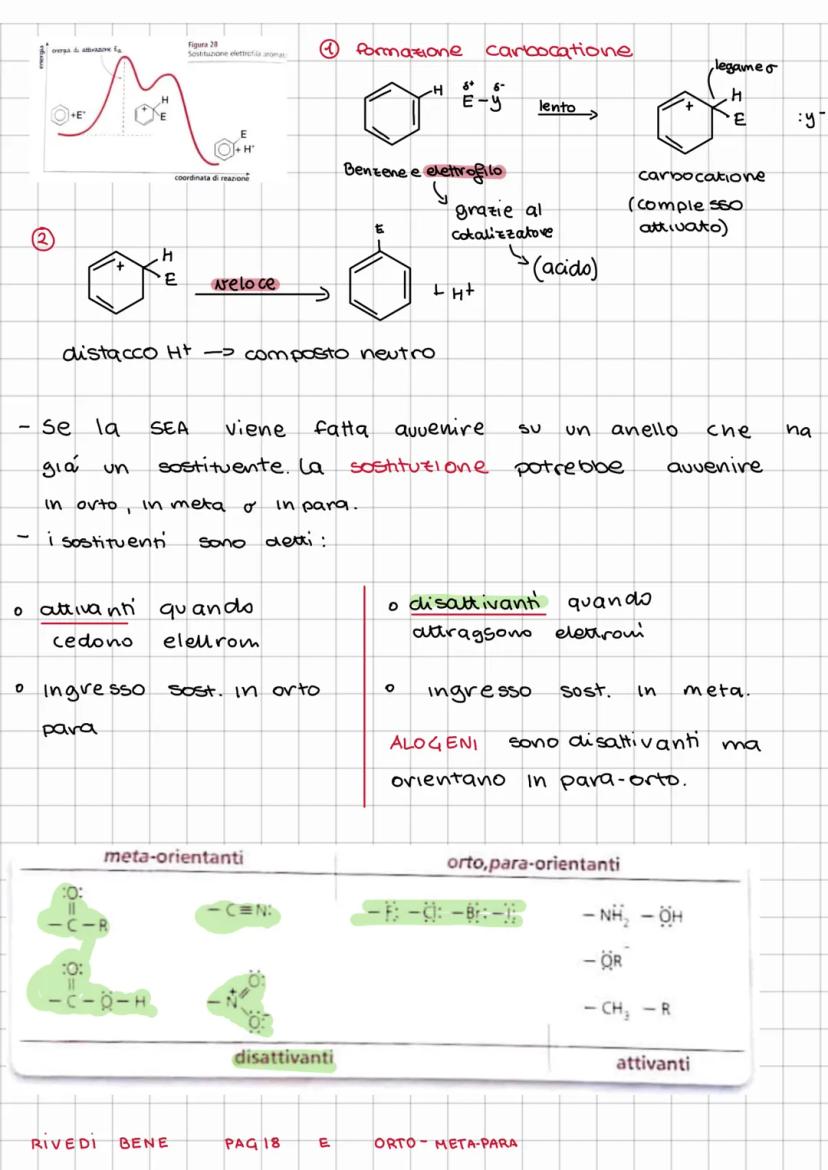 Figura 28
Sostituzione elettrofila aromat
energia
energia di attivazione Ea
+E⁺
+
H
E
E
+ H⁺
coordinata di reazione
① formazione carbocatione
legame σ
H
δ+ δ-
E - y
lento
+
H
E
:y⁻
Benzene e elettrofilo
carbocatione
(complesso
attivato)
grazie al
catalizzatore
(acido)
②
+
H
E
veloce
E
+ H+
distacco H+ -> composto neutro
- Se la SEA viene fatta avvenire su un anello che ha
già un sostituente. La sostituzione potrebbe avvenire
in orto, in meta o in para.
- i sostituenti sono detti:
o attivanti quando
cedono elettroni
o ingresso sost. in orto
para
o disattivanti quando
attraggono elettroni
o ingresso sost. in meta.
ALOGENI sono disattivanti ma
orientano in para-orto.
meta-orientanti
orto,para-orientanti
:O:
||
– C – R
– C≡N:
– F̈: – C̈l: – B̈r: – Ï:
– N̈H₂ – ÖH
– ÖR
:O:
||
– C – Ö – H
– N⁺
Ö:
Ö:⁻
– CH₃ – R
disattivanti
attivanti
RIVEDI BENE PAG 18 E ORTO - META-PARA